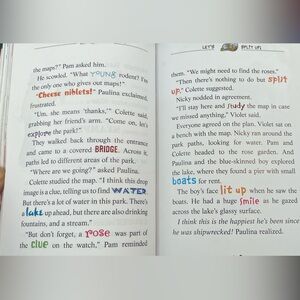 the maps?" Pam asked him.
He scowled. "What YOUNG rodent? I'm
the only one who gives out maps!"
"Cheese niblets!" Paulina exclaimed,
frustrated.
"Um, she means 'thanks,'" Colette said,
grabbing her friend's arm. "Come on, let's
explore the park!"
They walked back through the entrance
and came to a covered BRIDGE. Across it,
paths led to different areas of the park.
"Where are we going?" asked Paulina.
Colette studied the map. "I think this drop
image is a clue, telling us to find WATER.
But there's a lot of water in this park. There's
a lake up ahead, but there are also drinking
fountains, and a stream."
"But don't forget, a rose was part of
the clue on the watch," Pam reminded
LET'S SPLIT UP!
them. "We might need to find the roses."
"Then there's nothing to do but split
up," Colette suggested.
Nicky nodded in agreement.
"I'll stay here and study the map in case
we missed anything," Violet said.
Everyone agreed on the plan. Violet sat on
a bench with the map. Nicky ran around the
park paths, looking for water. Pam and
Colette headed to the rose garden. And
Paulina and the blue-skinned boy explored
the lake, where they found a pier with small
boats for rent.
The boy's face lit up when he saw the
boats. He had a huge smile as he gazed
across the lake's glassy surface.
I think this is the happiest he's been since
he was shipwrecked! Paulina realized.